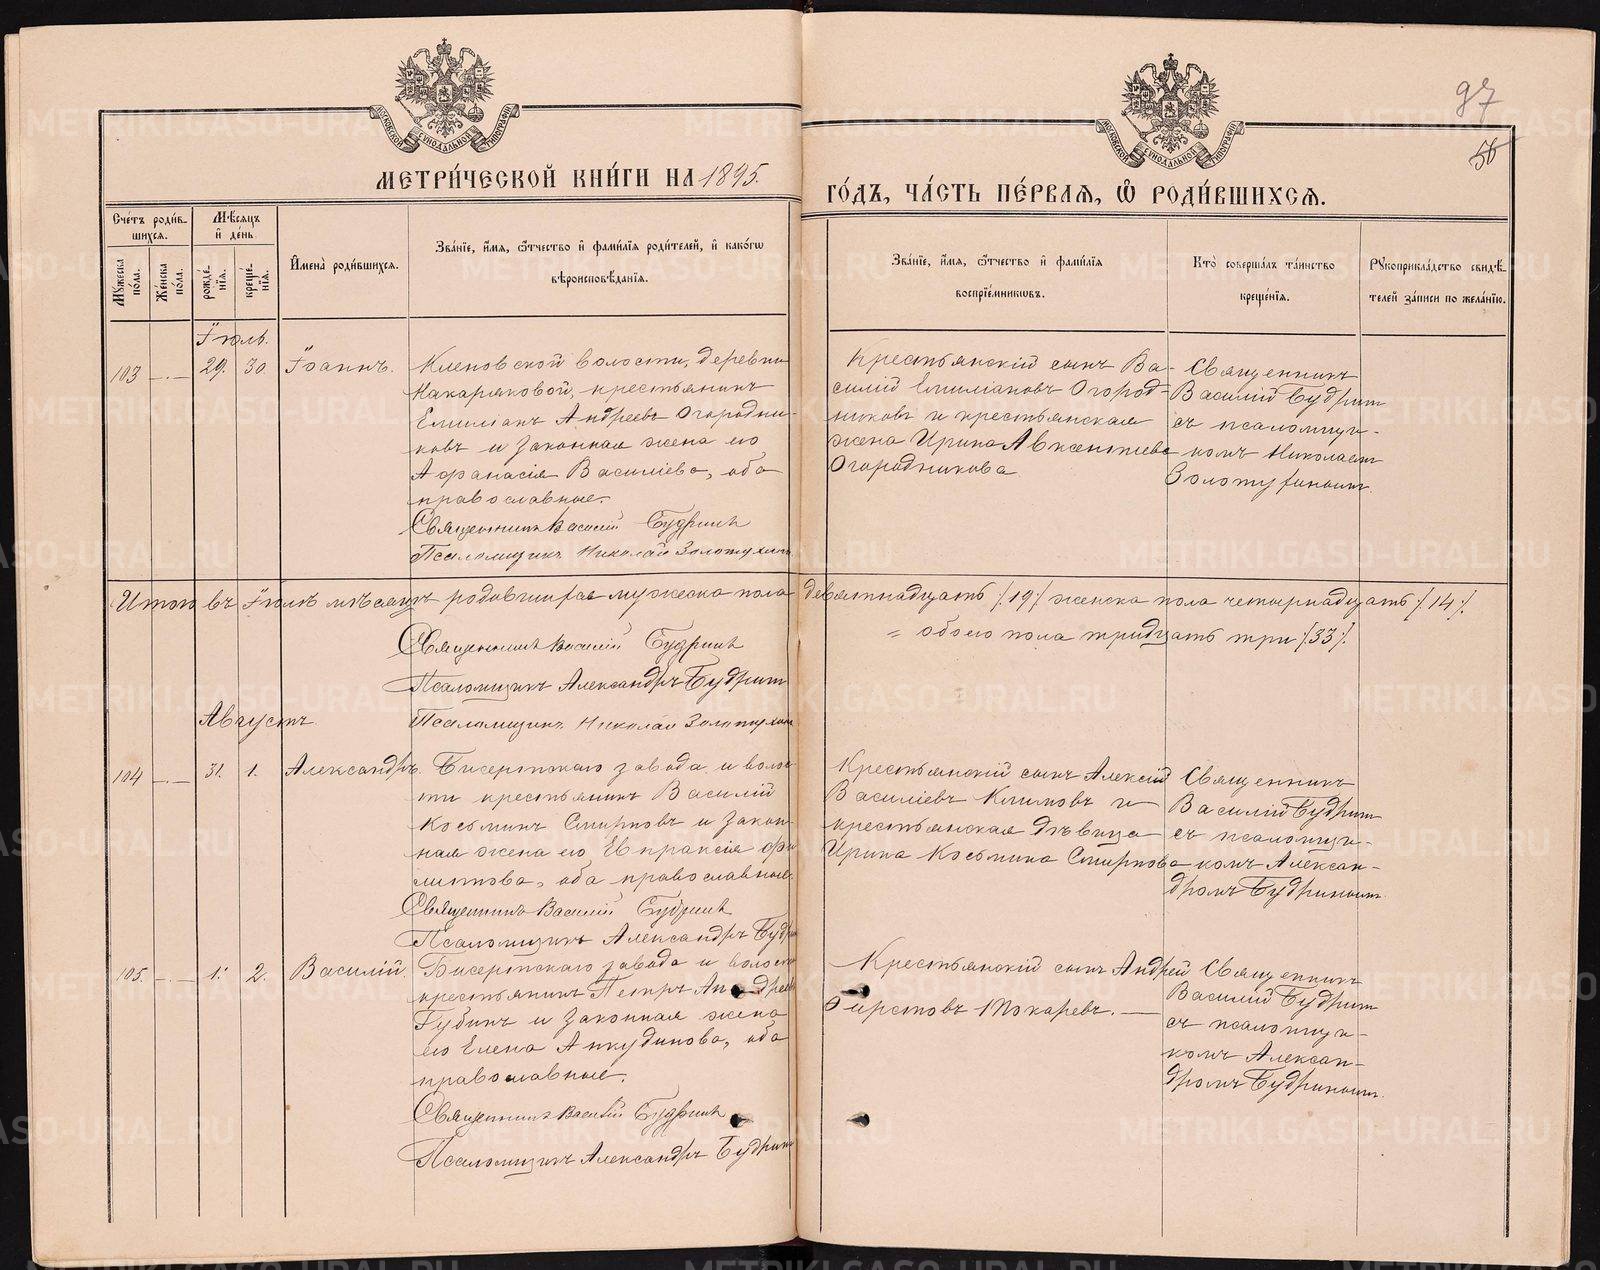 97
56
МОСКОВСКОЙ СУНОДАЛЬНОЙ ТИПОГРАФІИ
МОСКОВСКОЙ СУНОДАЛЬНОЙ ТИПОГРАФІИ
МЕТРИ́ЧЕСКОЙ КНИ́ГИ НА 1895.
ГО́ДЪ, ЧА́СТЬ ПЕ́РВАЯ, Ѡ҆ РОДИ́ВШИХСЯ.
Сче́тъ роди́в-
шихся.
Мꙋжеска по́ла.
Же́нска по́ла.
Мѣ́сяцъ
и҆ де́нь
рожде́-
нїя.
креще-
нїя.
И҆мена̀ роди́вшихся.
Зва́нїе, и҆́мя, ѻ҆́тчество и҆ фами́лїя роди́телей, и҆ како́гѡ
вѣроисповѣ́данїя.
Зва́нїе, и҆́мя, ѻ҆́тчество и҆ фами́лїя
воспрїе́мникѡвъ.
Кто̀ соверша́лъ та́инство
креще́нїя.
Рꙋкоприкла́дство свидѣ́-
телей за́писи по жела́нїю.
Іюль.
103 —.— 29. 30 Іоаннъ.
Кленовской волости, деревни
Накаряковой, крестьянинъ
Емиліанъ Андреевъ Огородни-
ковъ и законная жена его
Афанасія Василіева, оба
православные.
Священникъ Василій Будринъ
Псаломщикъ Николай Золотухинъ
Крестьянскій сынъ Ва-
силій Емиліановъ Огород-
никовъ и крестьянская
жена Ирина Авксентіева
Огородникова
Священникъ
Василій Будринъ
съ псаломщи-
комъ Николаемъ
Золотухинымъ
Итого въ Іюлѣ мѣсяцѣ родившихся мужеска пола девятнадцать /19/ женска пола четырнадцать /14/.
= обоего пола тридцать три /33/.
Священникъ Василій Будринъ
Псаломщикъ Александръ Будринъ
Псаломщикъ Николай Золотухинъ
Августъ
104 —.— 31. 1. Александръ.
Бисертскаго завода и волос-
ти крестьянинъ Василій
Косьминъ Смирновъ и закон-
ная жена его Евпраксія Фи-
липова, оба православные.
Священникъ Василій Будринъ
Псаломщикъ Александръ Будринъ
Крестьянскій сынъ Алексій
Василіевъ Климовъ и
крестьянская дѣвица
Ирина Косьмина Смирнова
Священникъ
Василій Будринъ
съ псаломщи-
комъ Алексан-
дромъ Будринымъ.
105. —.— 1. 2. Василій.
Бисертскаго завода и волости
крестьянинъ Петръ Андреевъ
Губинъ и законная жена
его Елена Анкудинова, оба
православные.
Священникъ Василій Будринъ
Псаломщикъ Александръ Будринъ
Крестьянскій сынъ Андрей
Фирстовъ Токаревъ.—
Священникъ
Василій Будринъ
съ псаломщи-
комъ Алексан-
дромъ Будринымъ.
METRIKI.GASO-URAL.RU